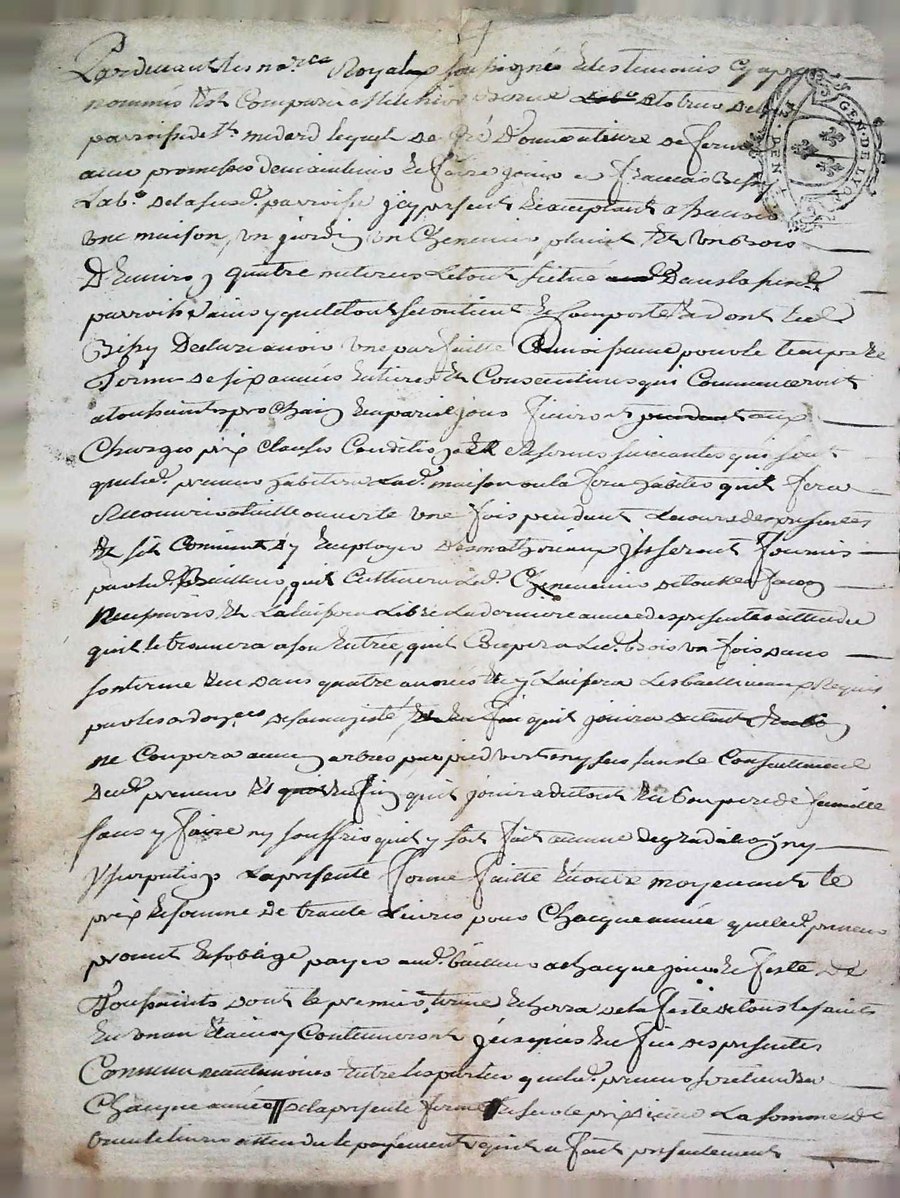 Pardevant les no.res Royal soussigné et les temoins cy apres
GEN. DE LYON
nommés est comparu
parroisse de St. medard lequel de gré a donné a titre de ferme
avec promesse de maintenir et faire jouir a francois Bessy
Lab.r de la susd. parroisse jcy present et acceptant a scavoir
une maison, un jardin un Chenevier, plaint et un bois
D'environ quatre meterées le tout situé dans la susd.
parroisse ainsy que le tout se contient et se comporte et a dont led.
Bessy Declare avoir une parfaitte Connoissance pour le temps et
terme de six années entieres et Consecutives qui Commenceront
a toussaints prochain et a pareil jour finiront aux
Charges prix Clauses Conditions et Reserves suivantes qui sont
que led. preneur habitera lad. maison ou la fera habiter quil fera
Recouvrir a taille ouverte une fois pendant le cours des presentes
et sil Convient d'y Employer des materiaux jls seront fournis
par led. Bailleur, quil Cultivera led. Chenevier de toutes facon
et la laissera libre la derniere année des presentes attendu
quil le trouvera a son entrée, quil Coupera led. Bois un fois dans
son terme et dans quatre années et y laissera les balliveaux Requis
par les ordonnces de sa majesté quil jouira du tout
ne Coupera aucun arbres par pied vert ny sec sans le Consentement
dud. preneur et en fin quil jouira du tout en bon pere de famille
sans y faire ny souffrir quil y soit fait aucune degradation ny
Usurpation La presente ferme faitte en outre moyenant le
prix et somme de trante Livres pour Chacque année que led. preneur
promet et soblige payer aud. bailleur a chacque jour et feste de
Toussaints dont le premier terme echerra de la feste de tous les saints
en un an et ainsy Continueront jusques en fin des presentes
Convenu entre les parties que led. preneur retiendra
Chacque année de la presente ferme sur le prix dicelle la somme de
livres attendu le payement quil a fait presentement